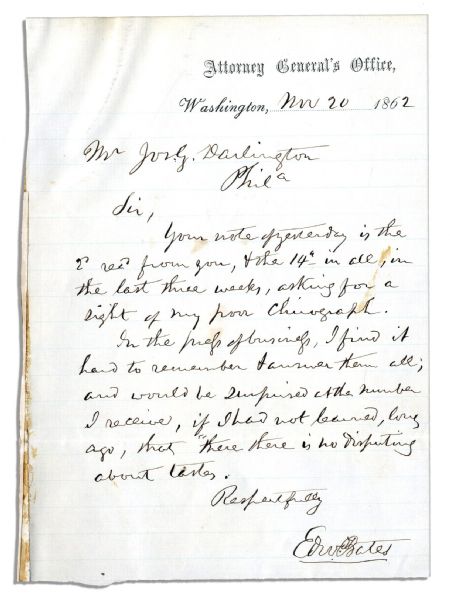 Attorney General's Office,
Washington, Nov 20 1862
Mr Jos. G. Darlington
Phila
Sir,
Your note of yesterday is the
2d recd from you, & the 14th in all, in
the last three weeks, asking for a
sight of my poor Chirograph.
In the press of business, I find it
hard to remember & answer them all;
and would be surprised at the number
I receive, if I had not learned, long
ago, that "there there is no disputing
about tastes.
Respectfully
Edw. Bates